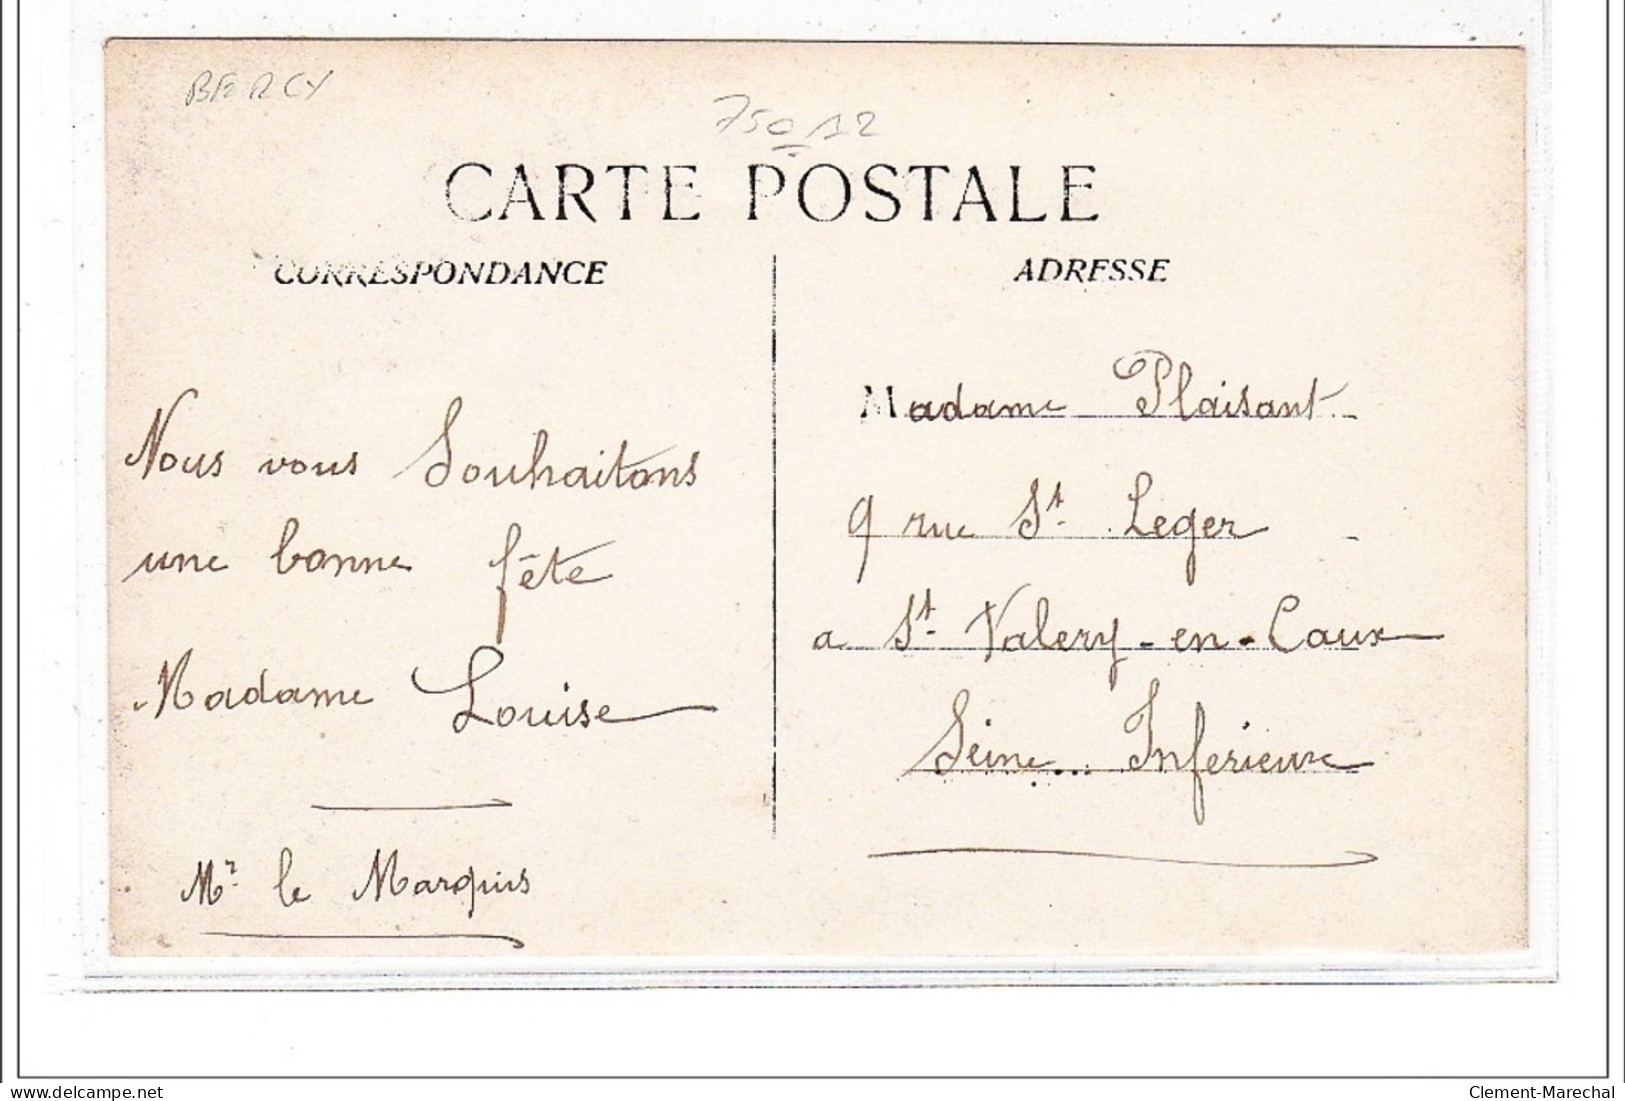 BERCY
75012
CARTE POSTALE
CORRESPONDANCE
ADRESSE
Nous vous Souhaitons
une bonne fête
Madame Louise
Mr. le Marquis
Madame Plaisant
9 rue St. Leger
a St. Valery-en-Caux
Seine... Inferieure
delcampe.net
Clement-Marechal